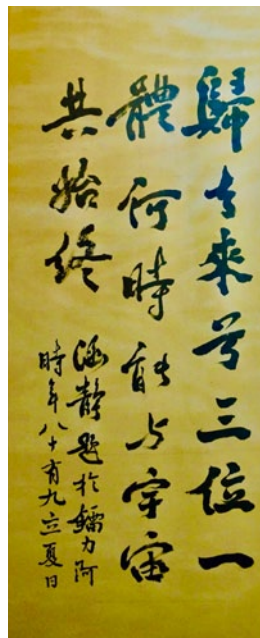 歸去來兮三位一
體何時能与宇宙
共始終
涵靜題於鐳力阿
時年八十有九立夏日